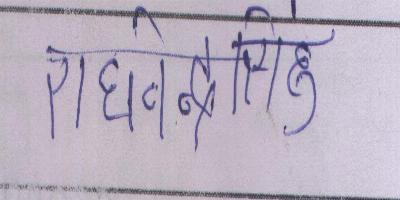 राघवेन्द्र सिंह